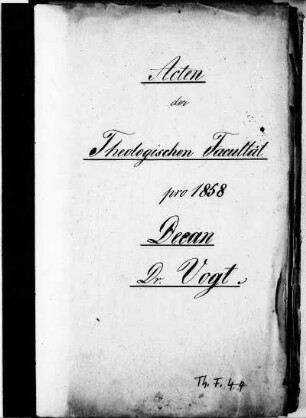 Acten
der
Theologischen Facultät
pro 1858
Decan
Dr. Vogt.
Th. F. 44